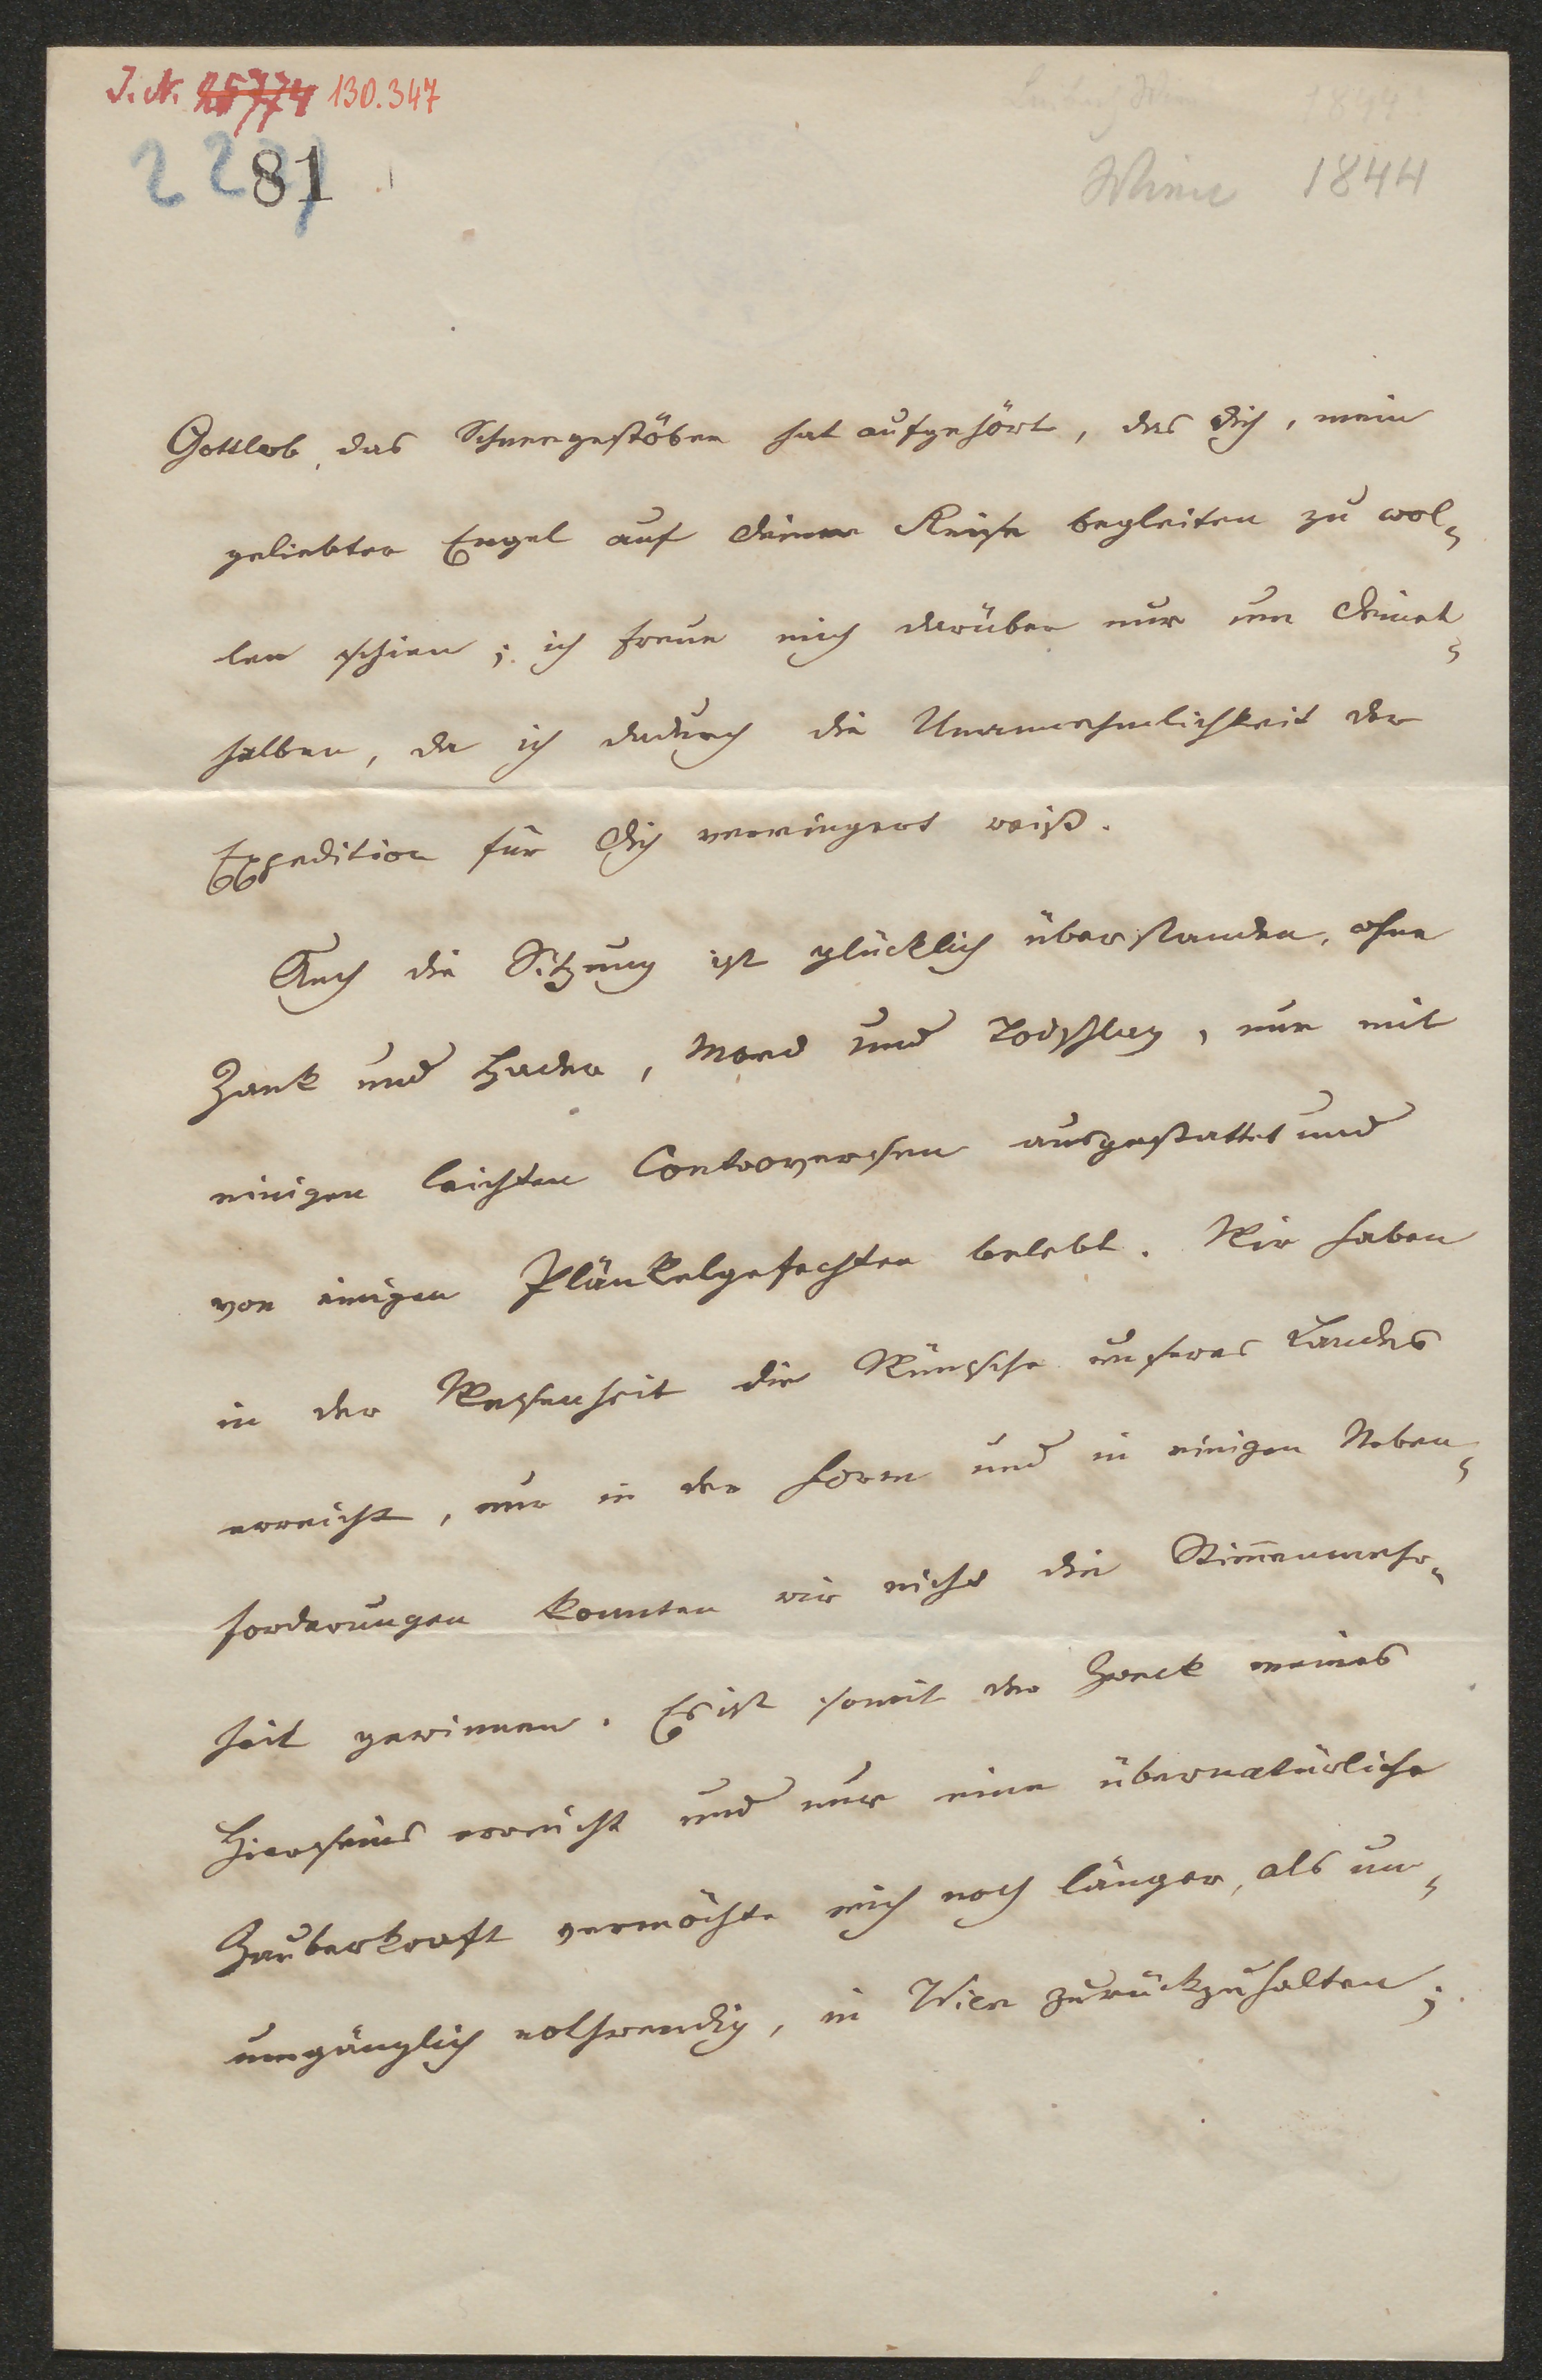 J. N. 25774 130.347
2281
Wien 1844
Gottlob, das Schneegestöber hat aufgehört, das Dich, mein
geliebter Engel auf Deiner Reise begleiten zu wol-
len schien; ich freue mich darüber nur um Deinet-
halben, da ich dadurch die Unannehmlichkeit der
Expedition für Dich verringert weiß.
Auch die Sitzung ist glücklich überstanden, ohne
Zank und Hader, Mord und Todschlag, nur mit
einigen leichten Controversen ausgestattet und
von einigen Plänkelgefechten belebt. Wir haben
in der Wesenheit die Wünsche unseres Landes
erreicht, nur in der Form und in einigen Neben-
forderungen konnten wir nicht die Stimmenmehr-
heit gewinnen. Es ist somit der Zweck meines
Hierseins erreicht und nur eine übernatürliche
Zauberkraft vermöchte mich noch länger, als un-
umgänglich nothwendig, in Wien zurückzuhalten;